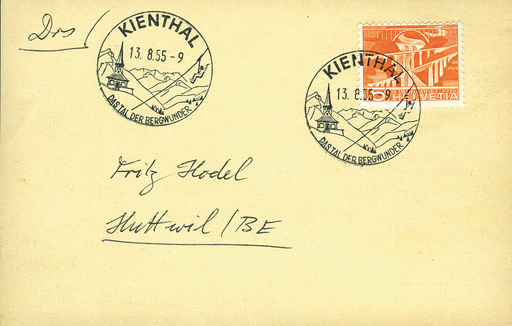 Drs
KIENTHAL
13.8.55-9
DAS TAL DER BERGWUNDER
KIENTHAL
13.8.55-9
DAS TAL DER BERGWUNDER
5
HELVETIA
Fritz Hodel
Huttwil/BE